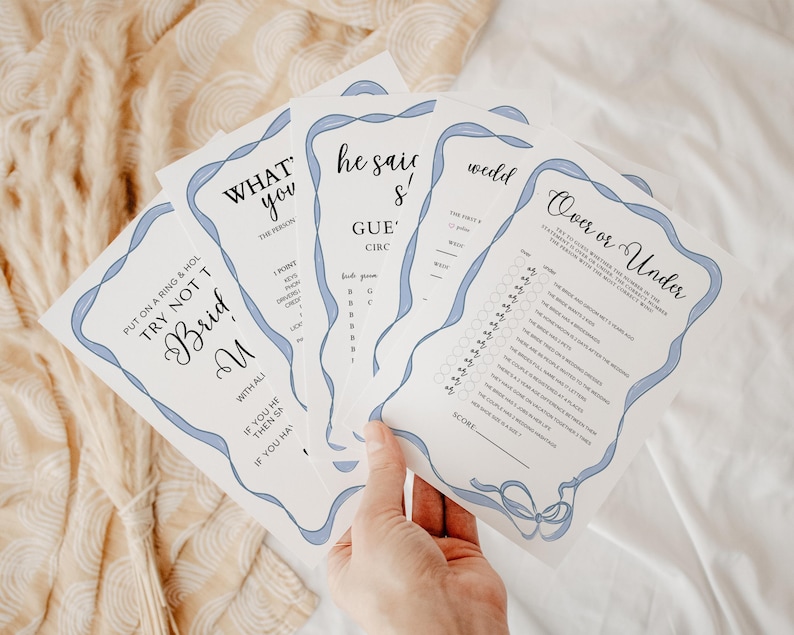 PUT ON A RING & HOL
TRY NOT T
Brid
W
WITH ALL
IF YOU HE
THEN SM
IF YOU HAV
WHAT'
you
THE PERSON
1 POINT
KEYS
PHON
DRIVERS
CREDIT
he said
s
GUES
CIRC
bride groom
B G
B
B
B
B
B
wedd
THE FIRST
WEDD
WEDD
Over or Under
TRY TO GUESS WHETHER THE NUMBER IN THE
STATEMENT IS OVER OR UNDER THE CORRECT NUMBER
THE PERSON WITH THE MOST CORRECT WINS!
over under
or THE BRIDE AND GROOM MET 5 YEARS AGO
or THE BRIDE WANTS 2 KIDS
or THE BRIDE HAS 4 BRIDESMAIDS
or THE HONEYMOON IS 2 DAYS AFTER THE WEDDING
or THE BRIDE HAS 2 PETS
or THE BRIDE TRIED ON 9 WEDDING DRESSES
or THERE ARE 85 PEOPLE INVITED TO THE WEDDING
or THE BRIDES FULL NAME HAS 17 LETTERS
or THE COUPLE IS REGISTERED AT 4 PLACES
or THERE'S A 1 YEAR AGE DIFFERENCE BETWEEN THEM
or THEY HAVE GONE ON VACATION TOGETHER 3 TIMES
or THE BRIDE HAS 5 JOBS IN HER LIFE
THE COUPLE HAS 2 WEDDING HASHTAGS
HER SHOE SIZE IS A SIZE 7
SCORE: